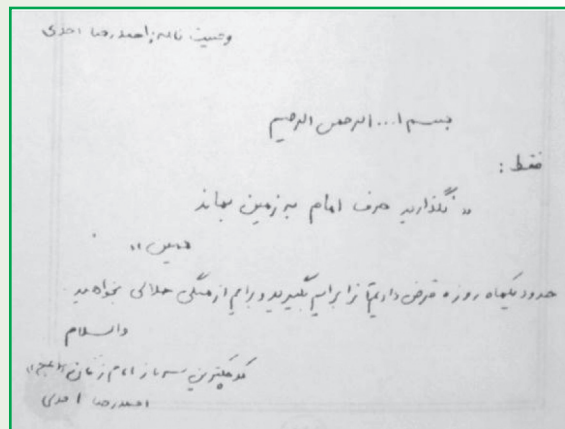 وصیت نامه: احمدرضا احدی
بسم ا... الرحمن الرحیم
فقط:
«نگذارید حرف امام به زمین بماند
همین»
حدود یکماه روزه قرض دارم آنرا برایم بگیرید و برایم از همگی حلالی بخواهید
والسلام
کوچکترین سرباز امام زمان (عج)
احمدرضا احدی